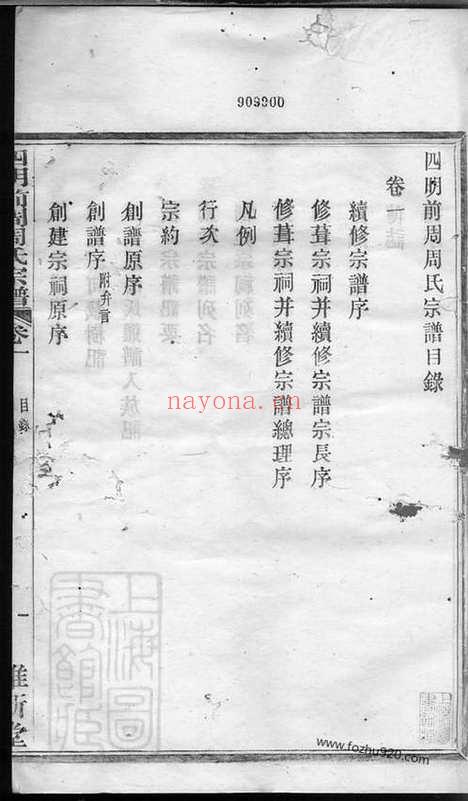 909900
四明前周周氏宗譜目錄
卷一
續修宗譜序
修葺宗祠并續修宗譜宗長序
修葺宗祠并續修宗譜總理序
凡例
行次
宗約
創譜原序
創譜序 附弁言
創建宗祠原序
四明前周周氏宗譜 卷一 目錄 一 惟新堂
上海圖書館藏
nayona.cn
www.fozhu920.com